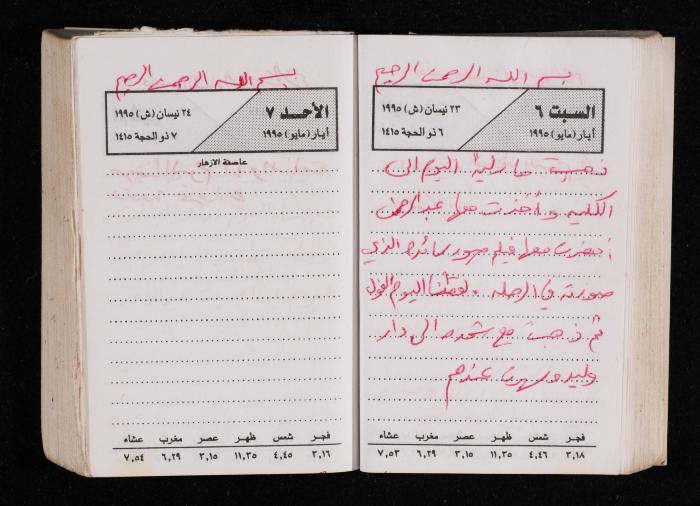 بسم الله الرحمن الرحيم
السبت ٦
٢٣ نيسان (ش) ١٩٩٥
أيار (مايو) ١٩٩٥
٦ ذو الحجة ١٤١٥
ذهبت اليوم الى
الكليه وأخذت معها عبدالرحمن
احضرت معها فيلم صور الذي
صورته في الرحله . اليوم الفول
ثم ذهبت مع الى دار
وليد وسهرنا عندهم
فجر شمس ظهر عصر مغرب عشاء
٣,١٨ ٤,٤٦ ١١,٣٥ ٣,١٥ ٦,٢٩ ٧,٥٣
بسم الله الرحمن الرحيم
الأحد ٧
٢٤ نيسان (ش) ١٩٩٥
أيار (مايو) ١٩٩٥
٧ ذو الحجة ١٤١٥
عاصفة الازهار
فجر شمس ظهر عصر مغرب عشاء
٣,١٦ ٤,٤٥ ١١,٣٥ ٣,١٥ ٦,٢٩ ٧,٥٤